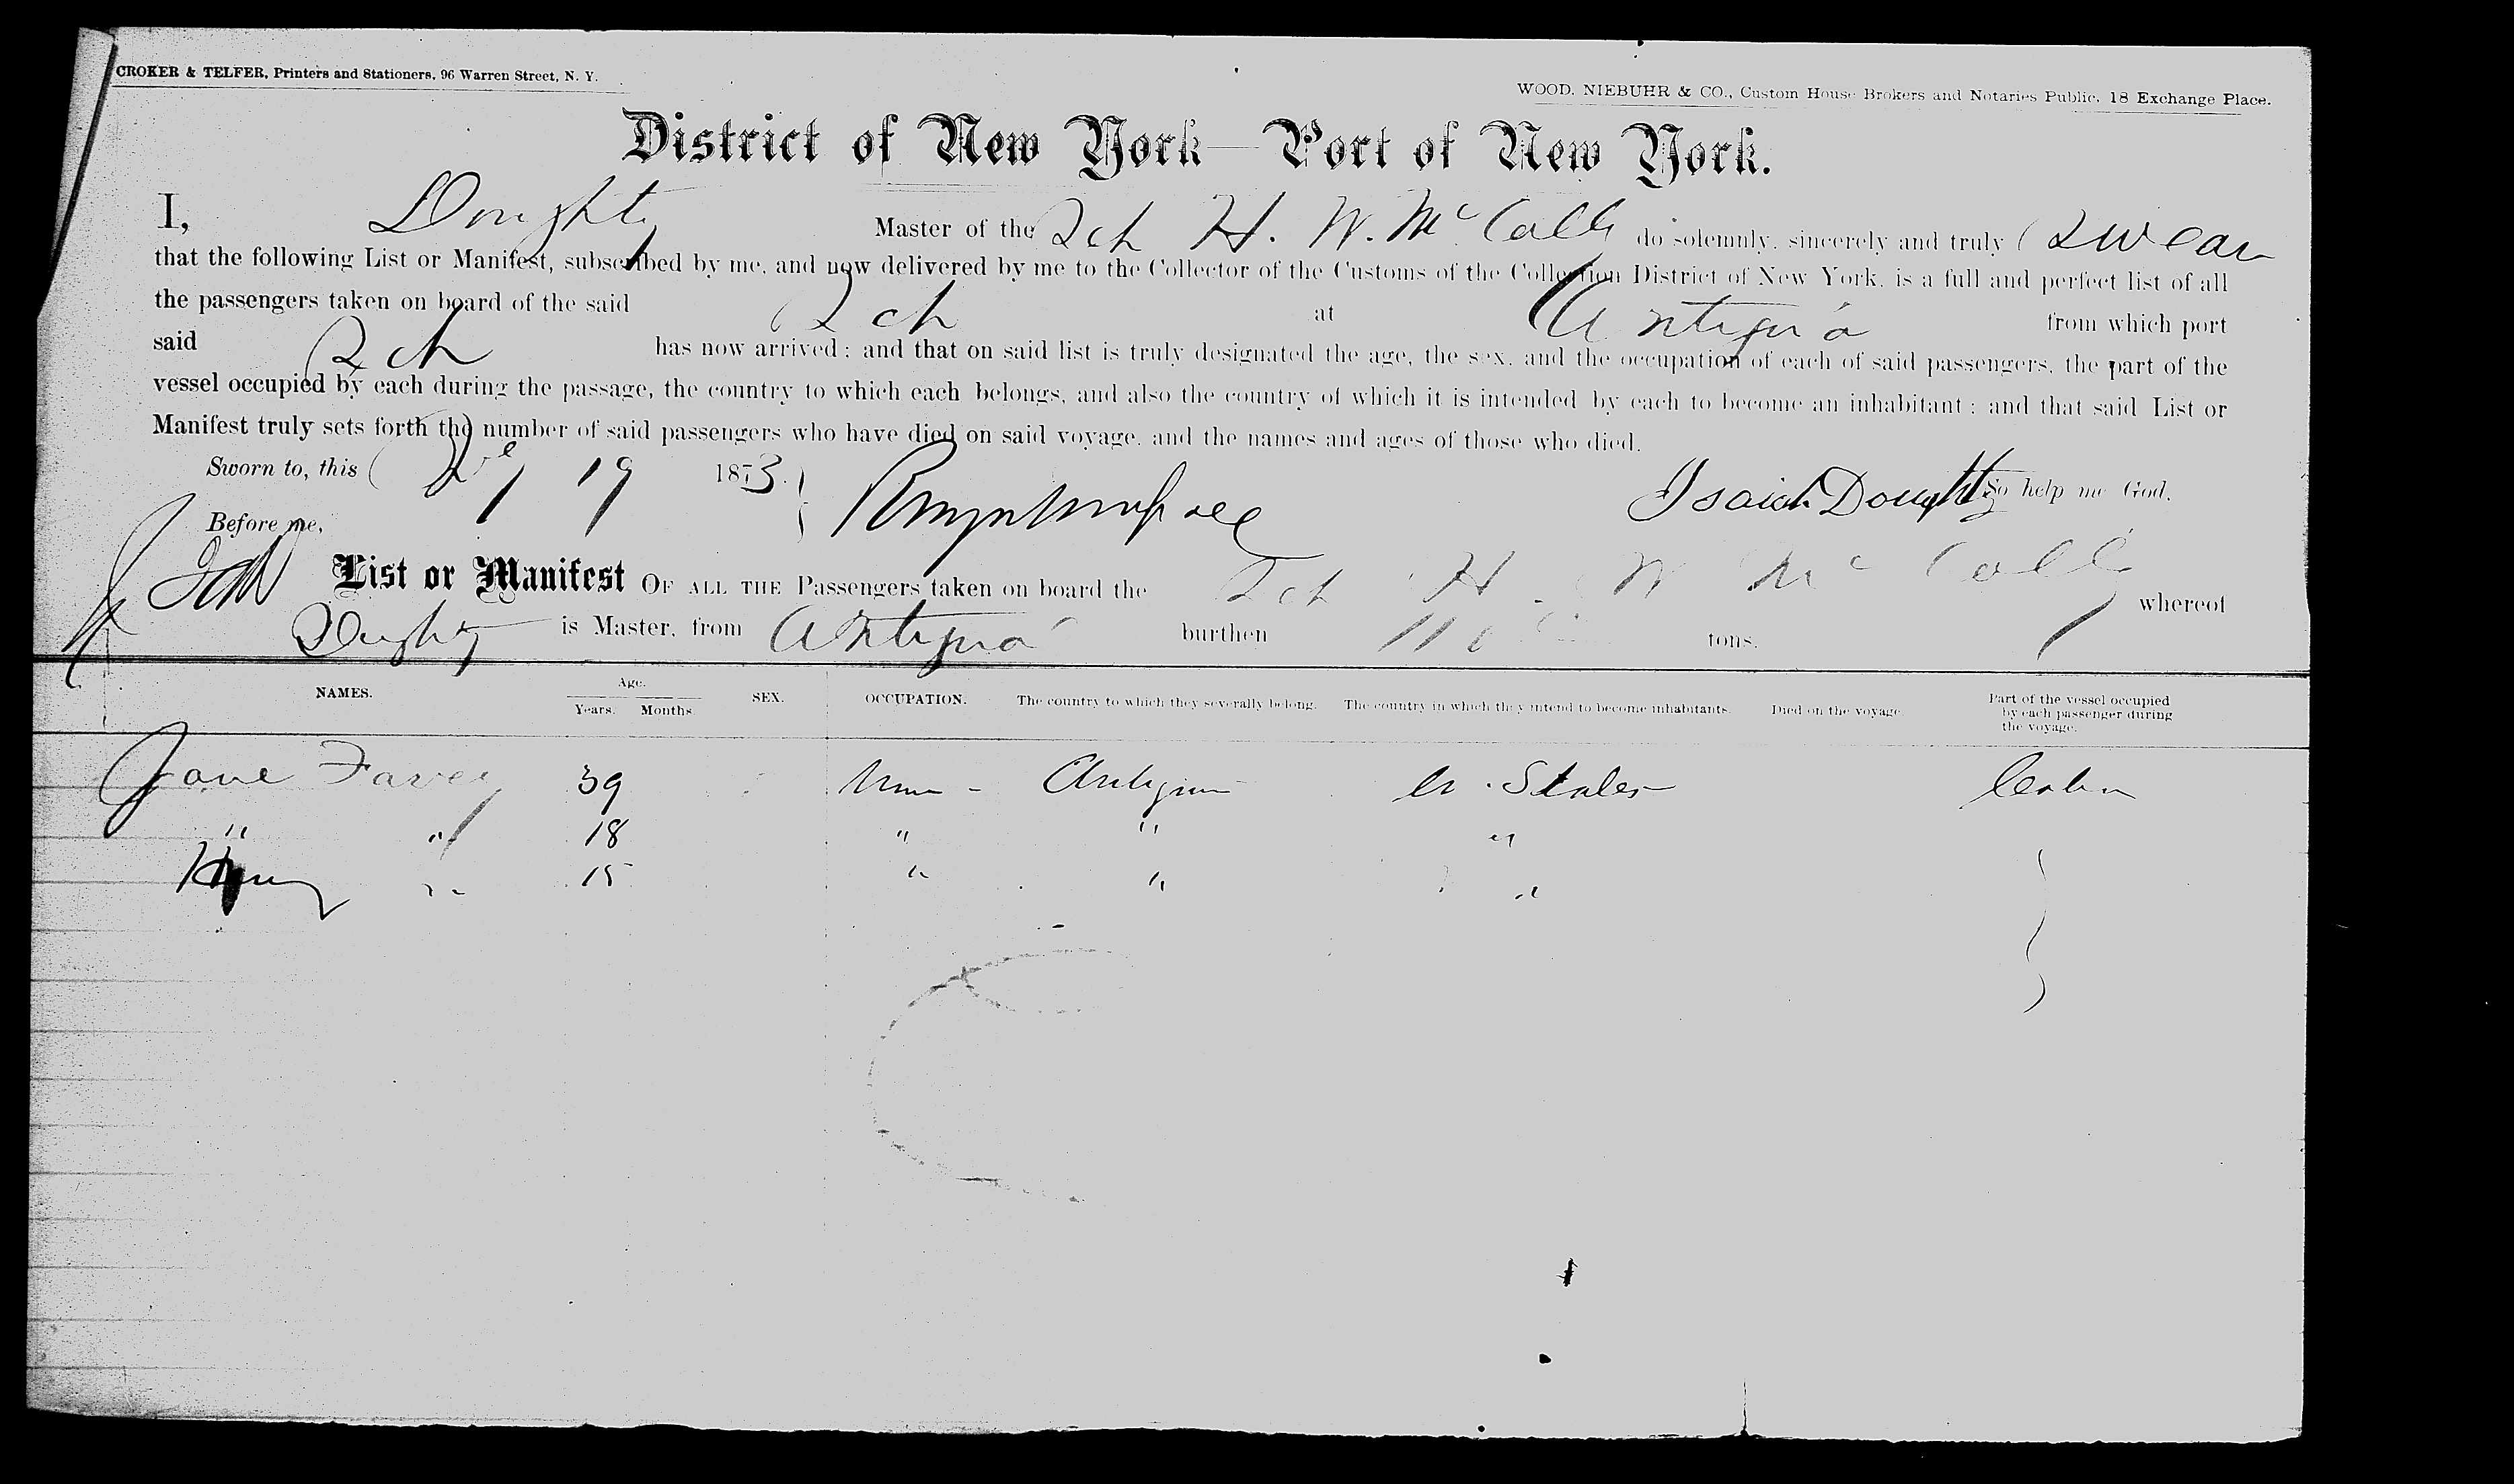 CROKER & TELFER, Printers and Stationers, 96 Warren Street, N. Y.
WOOD, NIEBUHR & CO., Custom House Brokers and Notaries Public, 18 Exchange Place.
District of New York—Port of New York.
I, Doughty Master of the Sch H. W. McColl do solemnly, sincerely and truly swear
that the following List or Manifest, subscribed by me, and now delivered by me to the Collector of the Customs of the Collection District of New York, is a full and perfect list of all
the passengers taken on board of the said Sch at Antigua from which port
said Sch has now arrived: and that on said list is truly designated the age, the sex, and the occupation of each of said passengers, the part of the
vessel occupied by each during the passage, the country to which each belongs, and also the country of which it is intended by each to become an inhabitant: and that said List or
Manifest truly sets forth the number of said passengers who have died on said voyage, and the names and ages of those who died.
Sworn to, this 19 1873. Isaiah Doughty So help me God.
Before me,
List or Manifest OF ALL THE Passengers taken on board the Sch H. W McColl whereof
Doughty is Master, from Antigua burthen tons.
NAMES. Age. Years. Months. SEX. OCCUPATION. The country to which they severally belong. The country in which they intend to become inhabitants. Died on the voyage. Part of the vessel occupied by each passenger during the voyage.
Jane 39 Antigua U. States Cabin
" " 18 " " "
Henry " 15 " " "